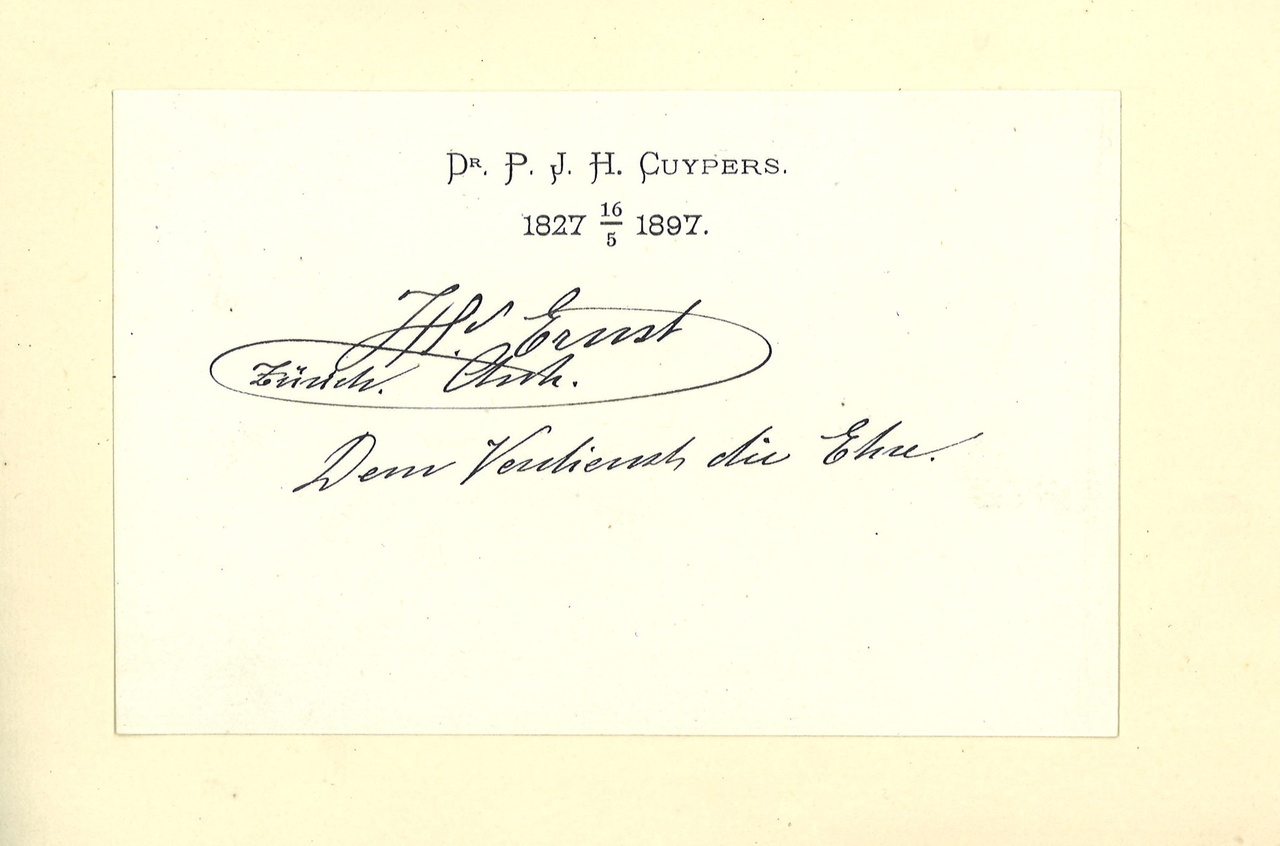 Dr. P. J. H. Cuypers.
1827 16/5 1897.
Hr. Ernst
Zürich. Arch.
Dem Verdienst die Ehre.